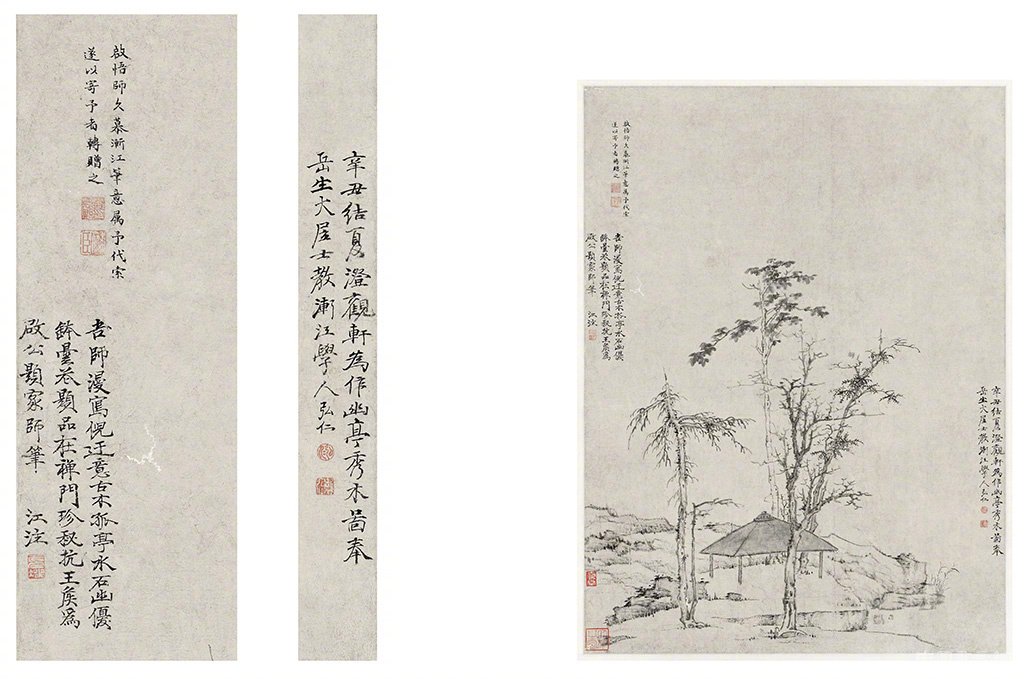 啟悟師久慕漸江筆意属予代索
遂以寄予者轉贈之
吾師漫寫倪迂意古木孤亭水石幽優
鉢曇花題品在禅門珍秘抗王侯為
啟公題家師筆 江注
辛丑結夏澄觀軒為作幽亭秀木啚奉
岳生大居士教漸江學人弘仁
啟悟師久慕漸江筆意属予代索
遂以寄予者轉贈之
吾師漫寫倪迂意古木孤亭水石幽優
鉢曇花題品在禅門珍秘抗王侯為
啟公題家師筆 江注
辛丑結夏澄觀軒為作幽亭秀木啚奉
岳生大居士教漸江學人弘仁